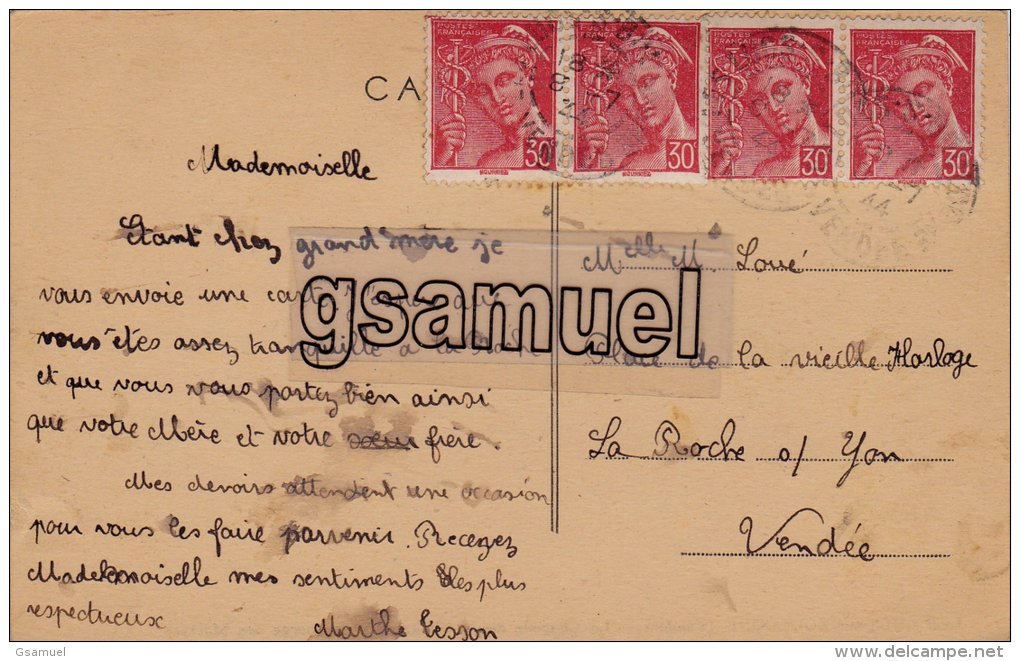 CA
POSTES FRANÇAISES
POSTES FRANÇAISES
POSTES FRANÇAISES
POSTES FRANÇAISES
30
30
30
30
MOURRIER
MOURRIER
MOURRIER
MOURRIER
18
8
44
VENDÉE
Mademoiselle
Étant chez grand'mère je
vous envoie une carte que
vous êtes assez tranquille à la Roche
et que vous vous portez bien ainsi
que votre Mère et votre soeur frère.
Mes devoirs attendent une occasion
pour vous les faire parvenir. Recevez
Mademoiselle mes sentiments les plus
respectueux
Marthe Tesson
Melle M. Loué
Place de La vieille Horloge
La Roche s/ Yon
Vendée
gsamuel
Gsamuel
delcampe.net